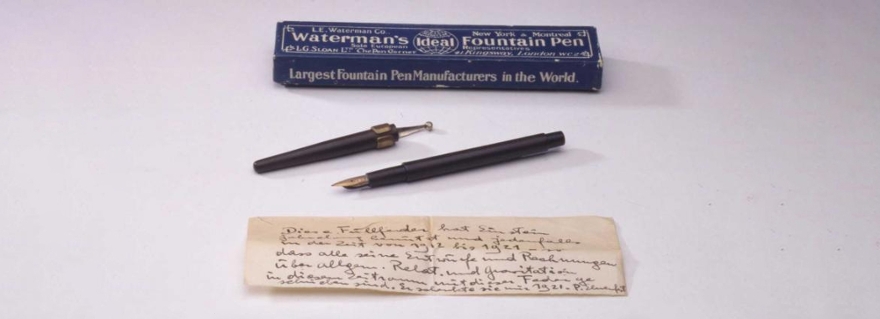 L.E. Waterman Co. New York & Montreal
Waterman's Ideal Fountain Pen
Sole European Representatives
L.G. Sloan Ltd. The Pen Corner Kingsway, London WC2
Largest Fountain Pen Manufacturers in the World.
Diese Füllfeder hat Einstein
benutzt und jedenfalls
in der Zeit von 1912 bis 1921 so
dass alle seine Entwürfe und Rechnungen
über allgem. Relat. und Gravitation
in diesem Zeitraum mit dieser Feder ge
schrieben sind. Er schenkte sie mir 1921.